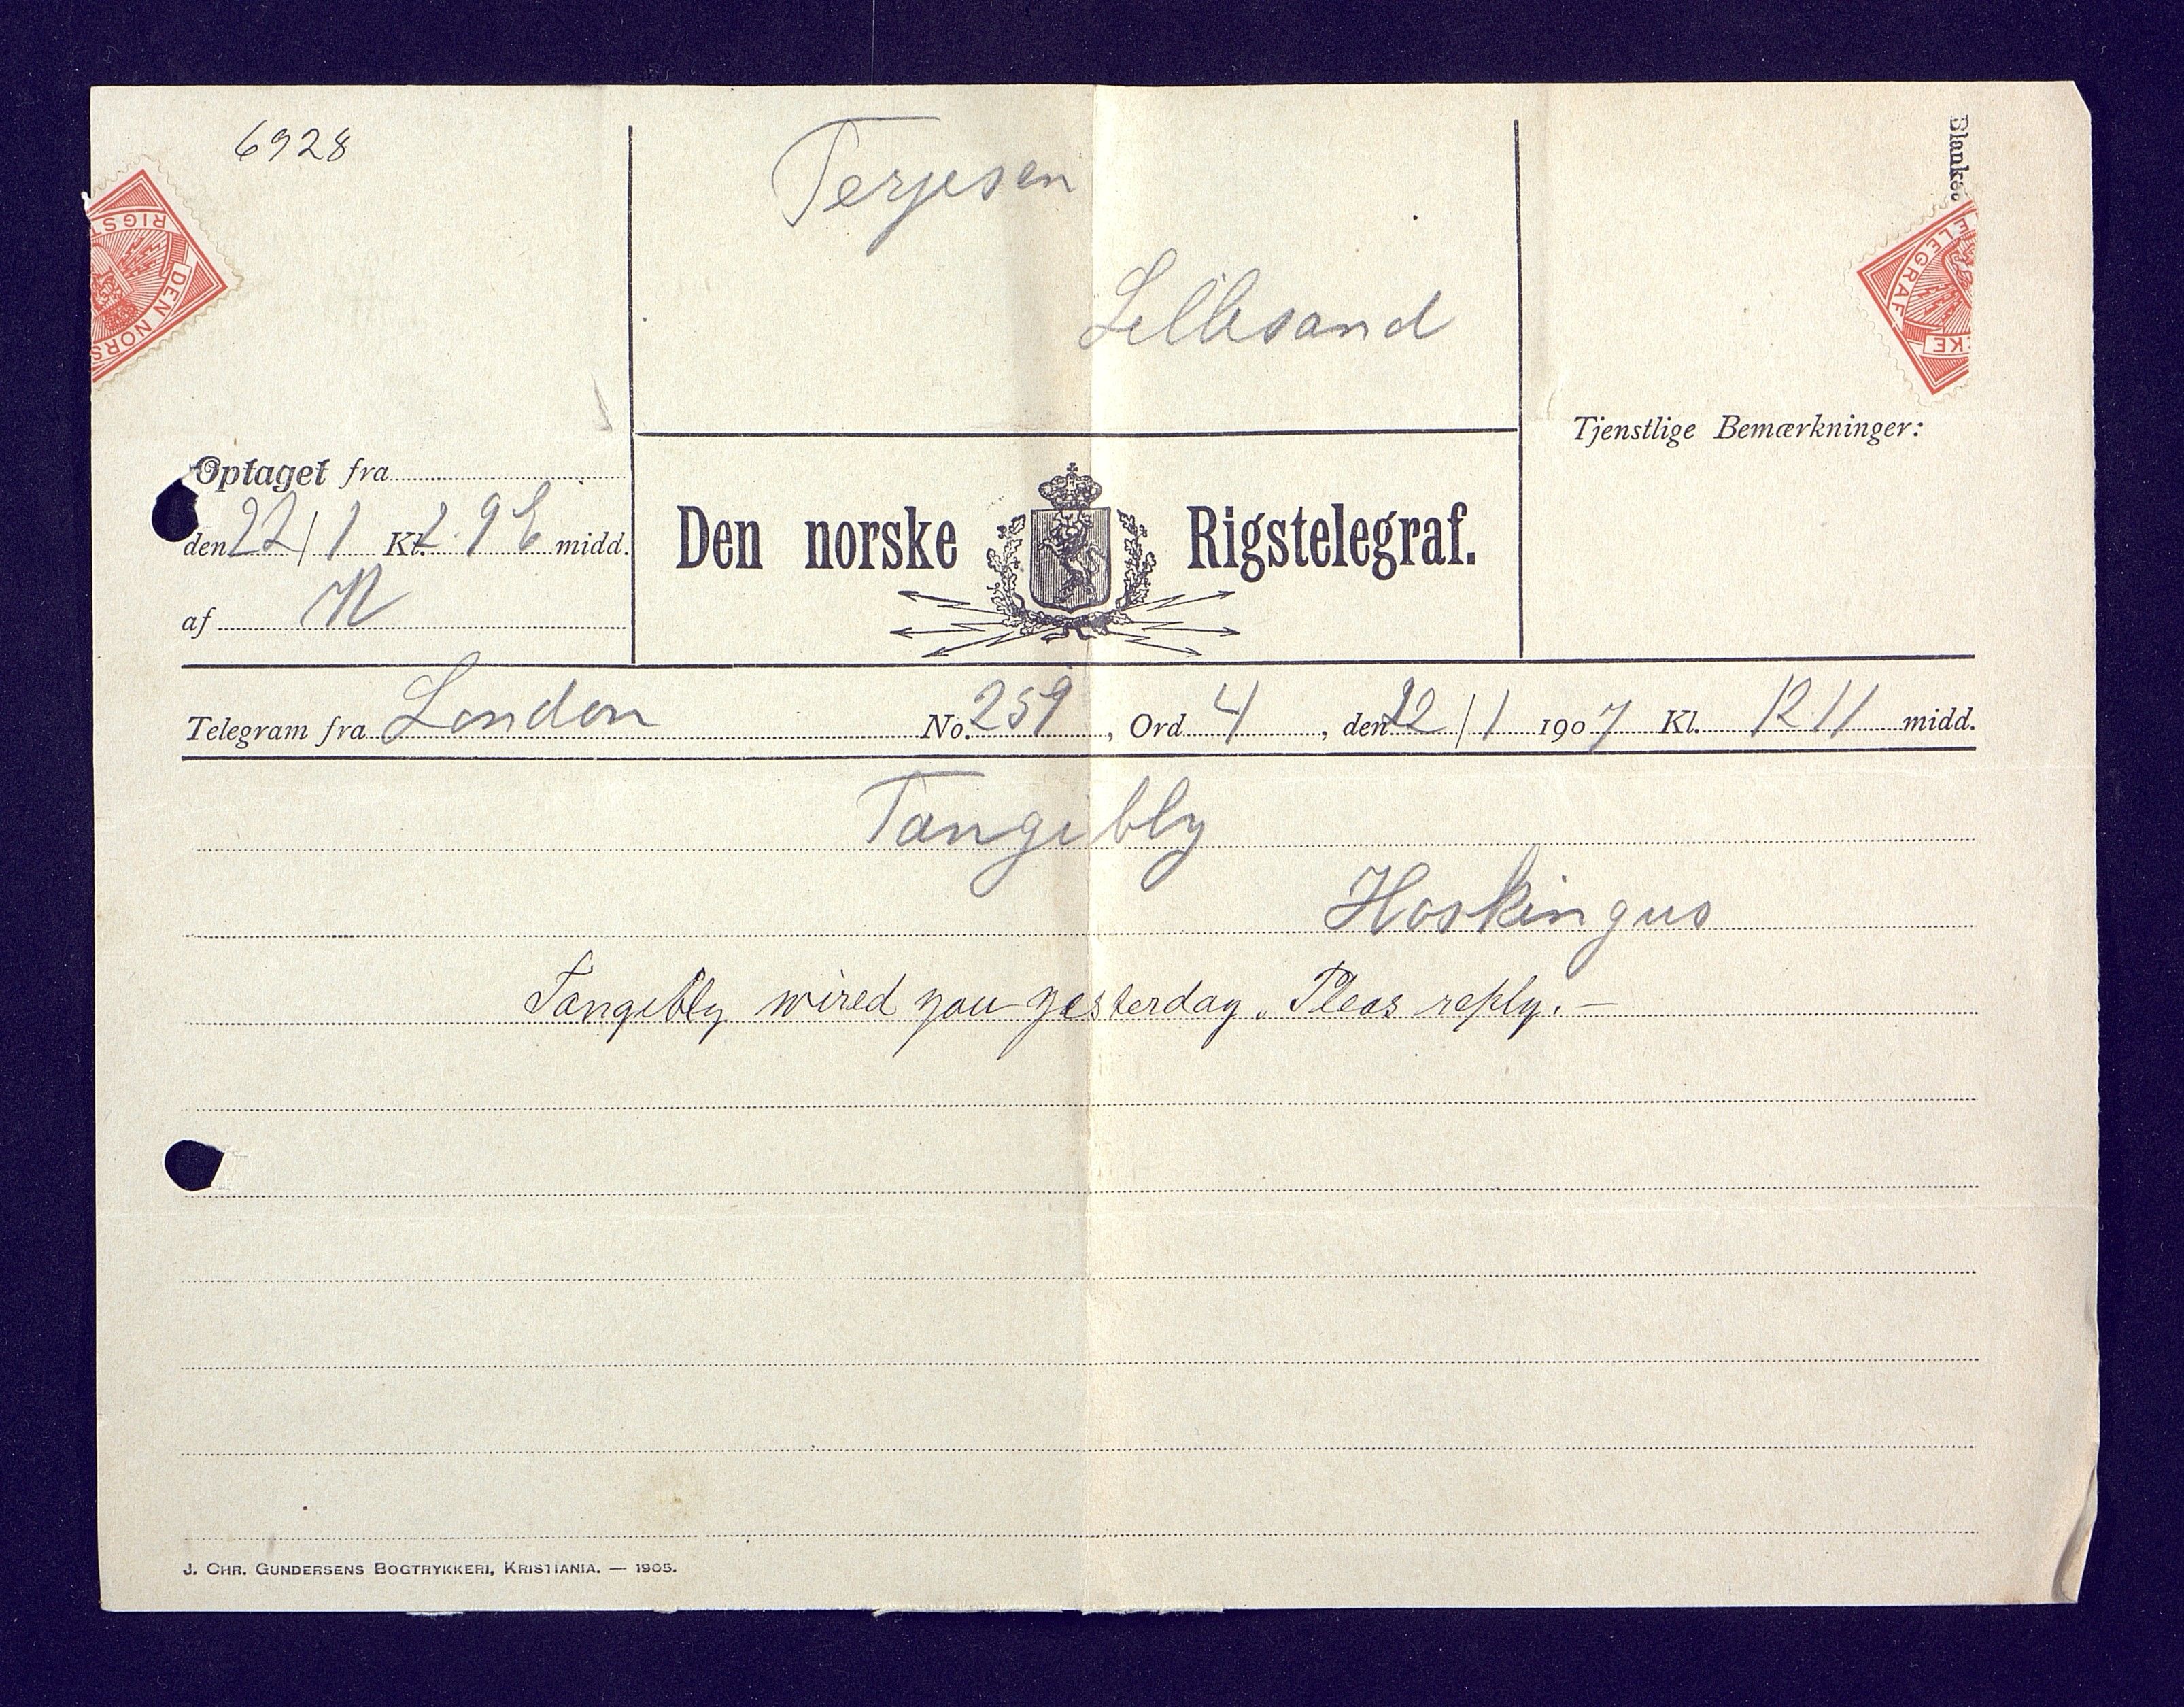 6928
Terjesen
Lillesand
Blanke
DEN NORS
RIGST
ELEGRAF
KE
Tjenstlige Bemærkninger:
Optaget fra
den 22/1 Kl. 2.9 E midd.
af N
Den norske Rigstelegraf.
Telegram fra London No. 259, Ord 4, den 22/1 1907 Kl. 12.11 midd.
Tangibly
Hoskingus
Tangibly wired you yesterday. Pleas reply. —
J. CHR. GUNDERSENS BOGTRYKKERI, KRISTIANIA. — 1905.